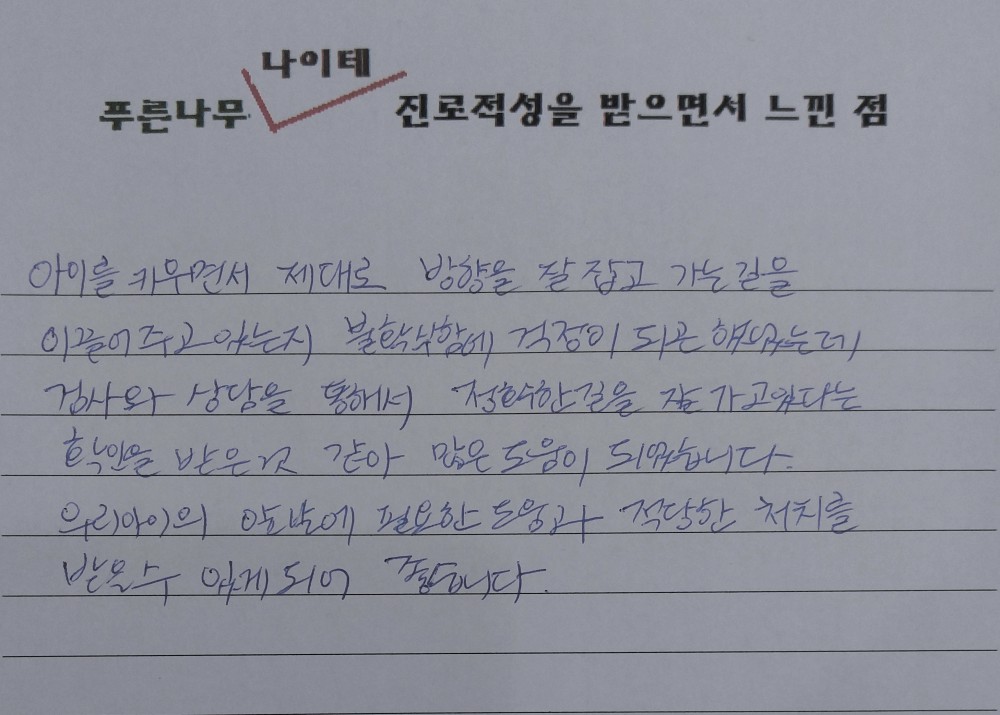 나이테
푸른나무 진로적성을 받으면서 느낀 점
아이를 키우면서 제대로 방향을 잘 잡고 가는길을
이끌어주고 있는지 불확실함에 걱정이 되곤 했었는데
검사와 상담을 통해서 정확한길을 잘 가고있다는
확인을 받은것 같아 많은 도움이 되었습니다.
우리아이의 앞날에 필요한 도움과 적당한 처치를
받을수 있게되어 좋습니다.